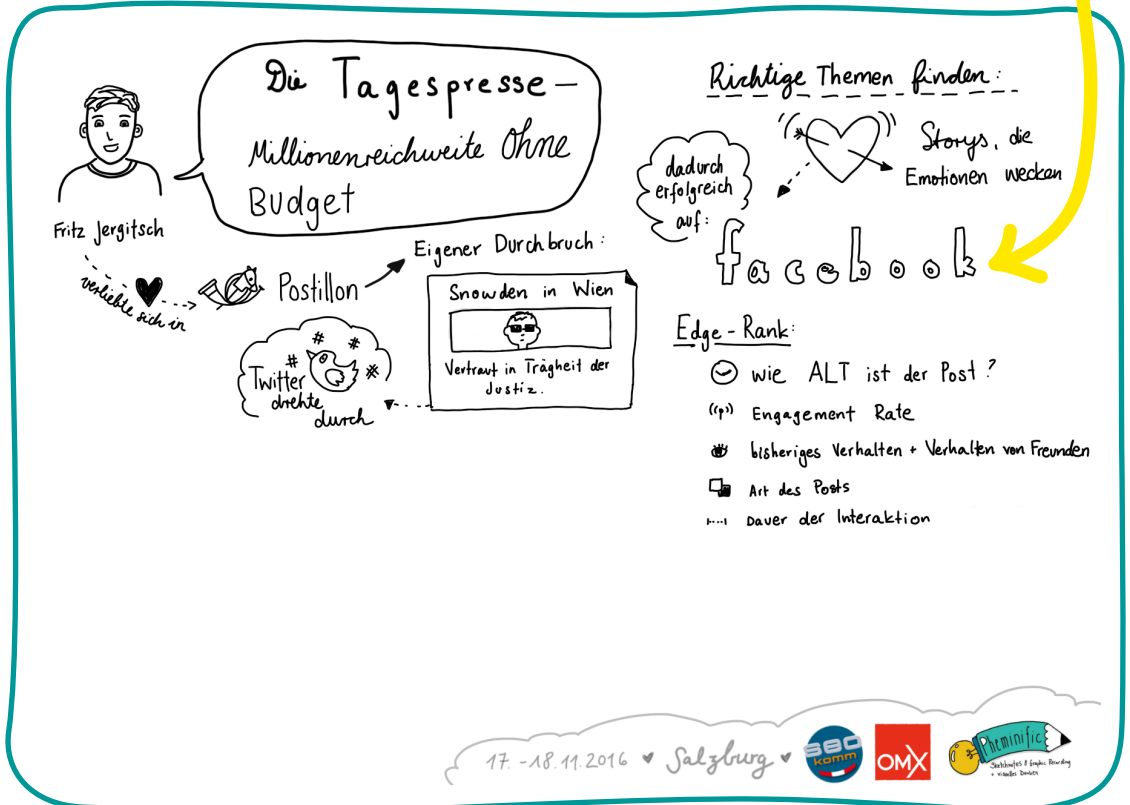 Die Tagespresse –
Millionenreichweite Ohne
Budget
Fritz Jergitsch
verliebte sich in
Postillon
Eigener Durchbruch:
Snowden in Wien
Vertraut in Trägheit der
Justiz.
# # # #
Twitter
drehte
durch
Richtige Themen finden:
Storys, die
Emotionen wecken
dadurch
erfolgreich
auf:
facebook
Edge-Rank:
wie ALT ist der Post?
Engagement Rate
bisheriges Verhalten + Verhalten von Freunden
Art des Posts
Dauer der Interaktion
17.-18.11.2016 ♥ Salzburg ♥
SEO
komm
OMX
Pheminific
Sketchnotes & Graphic Recording
+ visuelles Denken